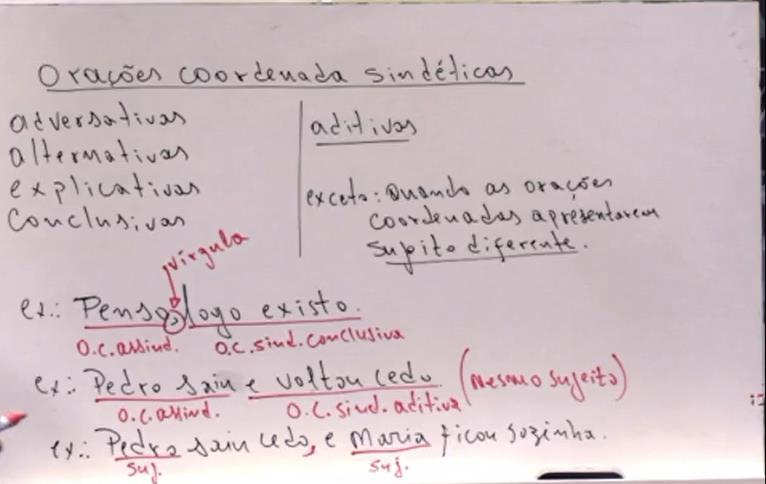 Orações coordenada sindéticas
adversativas
alternativas
explicativas
Conclusivas
aditivas
exceto: Quando as orações
coordenadas apresentarem
sujeito diferente.
vírgula
ex.: Penso, logo existo.
O.C.assind. O.C.sind.conclusiva
ex.: Pedro saiu e voltou cedo. (mesmo sujeito)
O.C.assind. O.C.sind.aditiva
ex.: Pedro saiu cedo, e Maria ficou sozinha.
suj. suj.